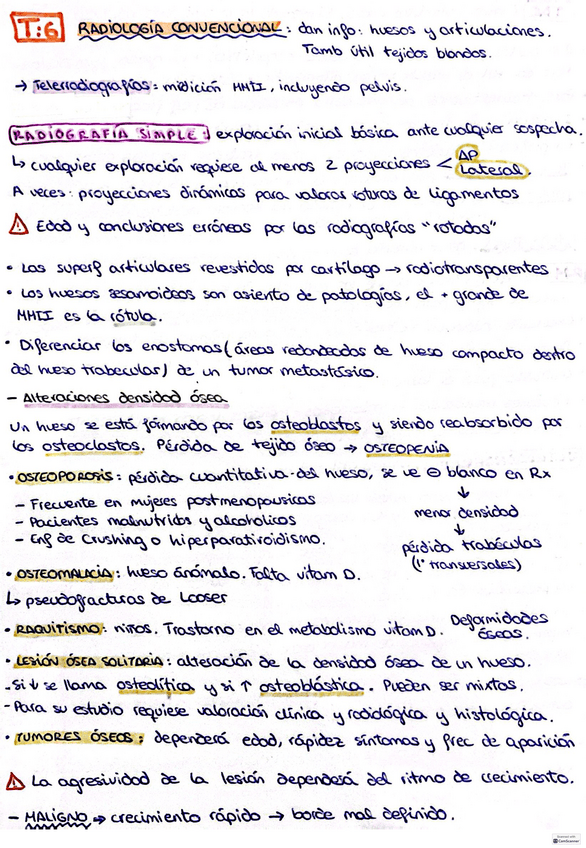 T:6 RADIOLOGÍA CONVENCIONAL: dan info: huesos y articulaciones.
Tamb útil tejidos blandos.
→ Telerradiografías: midición MMII, incluyendo pelvis.
RADIOGRAFÍA SIMPLE: exploración inicial básica ante cualquier sospecha.
↳ cualquier exploración requiere al menos 2 proyecciones < AP
Lateral.
A veces: proyecciones dinámicas para valorar roturas de ligamentos
⚠ Edad y conclusiones erróneas por las radiografías "rotadas"
• Las superf articulares revestidas por cartílago → radiotransparentes
• Los huesos sesamoideos son asiento de patologías, el + grande de
MMII es la rótula.
• Diferenciar los enostomas (áreas redondeadas de hueso compacto dentro
del hueso trabecular) de un tumor metastásico.
- Alteraciones densidad ósea
Un hueso se está formando por los osteoblastos y siendo reabsorbido por
los osteoclastos. Pérdida de tejido óseo → OSTEOPENIA
• OSTEOPOROSIS: pérdida cuantitativa del hueso, se ve ⊖ blanco en Rx
- Frecuente en mujeres postmenopausicas
- Pacientes malnutridos y alcoholicos
- Enf de Crushing o hiperparatiroidismo.
↓
menor densidad
↓
pérdida trabéculas
(1º transversales)
• OSTEOMALACIA: hueso anómalo. Falta vitam D.
↳ pseudofracturas de Looser
• RAQUITISMO: niños. Trastorno en el metabolismo vitam D. Deformidades
óseas.
• LESIÓN ÓSEA SOLITARIA: alteración de la densidad ósea de un hueso.
- Si ↓ se llama osteolítica y si ↑ osteoblástica. Pueden ser mixtas.
- Para su estudio requiere valoración clínica y radiológica y histológica.
• TUMORES ÓSEOS: dependerá edad, rápidez síntomas y frec de aparición
⚠ La agresividad de la lesión dependerá del ritmo de crecimiento.
- MALIGNO ⇒ crecimiento rápido → borde mal definido.
CamScanner